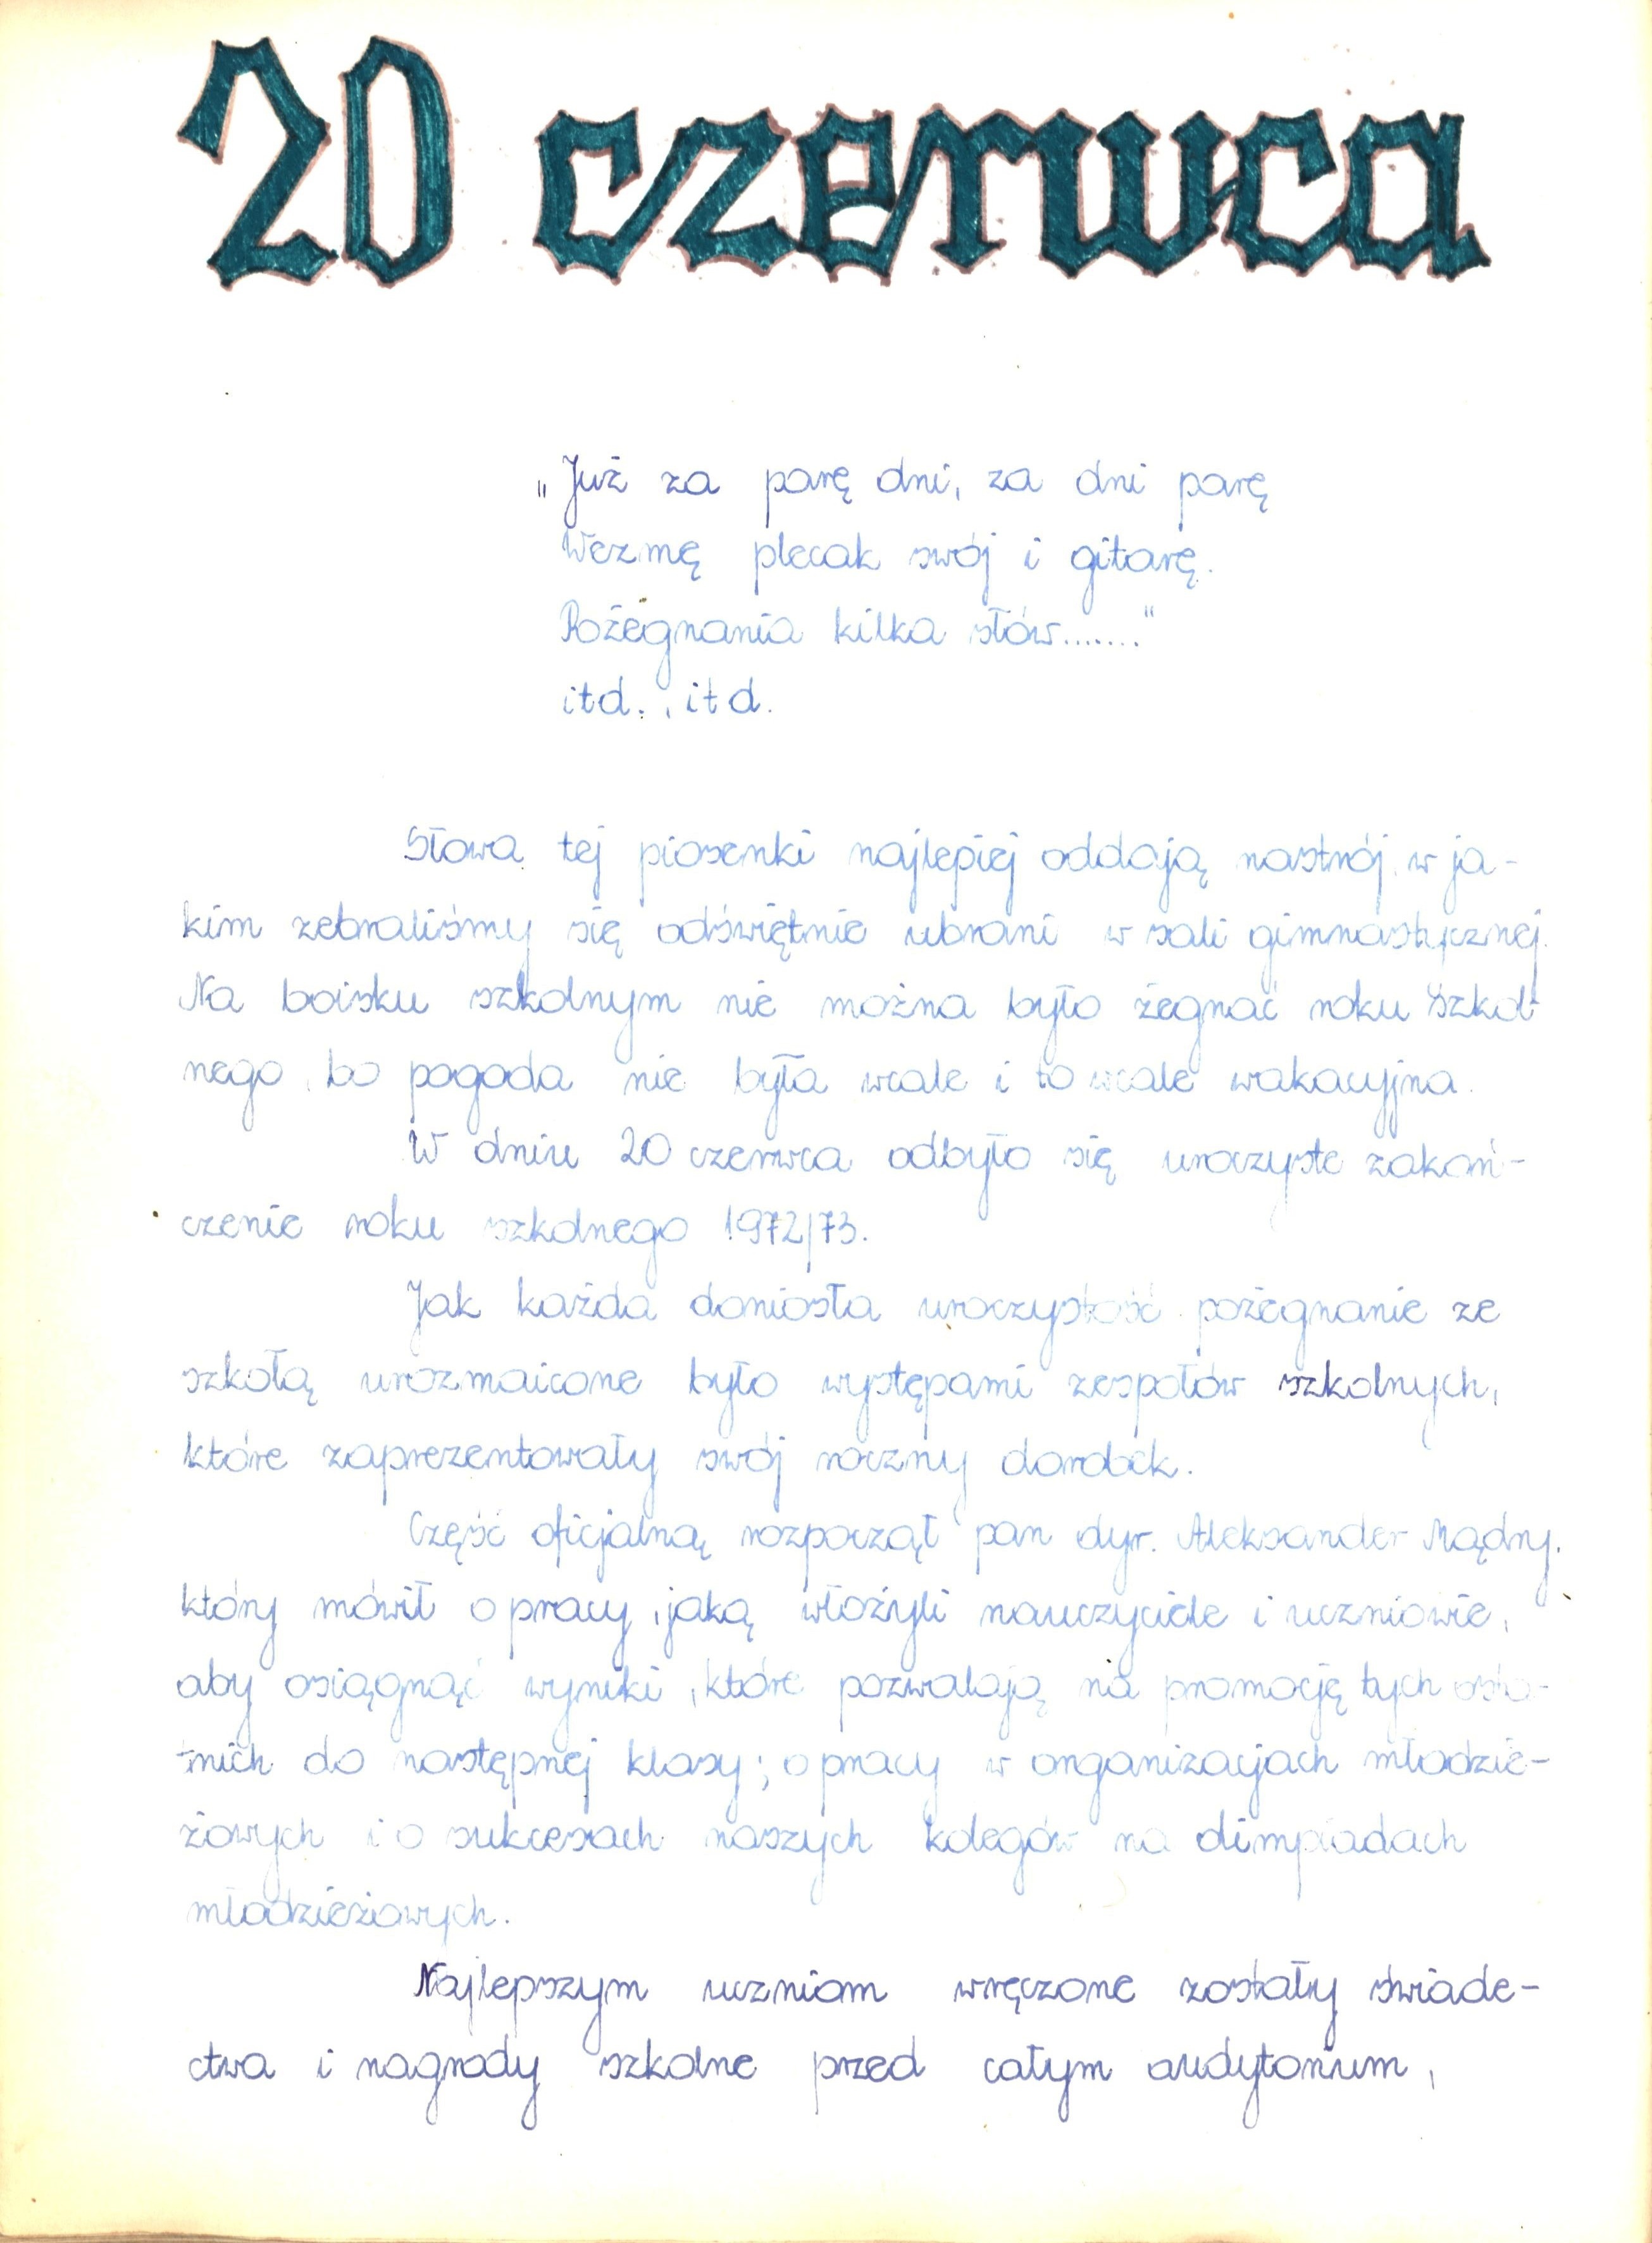 20 czerwca
„Już za parę dni, za dni parę
Wezmę plecak swój i gitarę.
Pożegnania kilka słów......."
itd., itd.
Słowa tej piosenki najlepiej oddają nastrój, w ja-
kim zebraliśmy się odświętnie ubrani w sali gimnastycznej.
Na boisku szkolnym nie można było żegnać roku szkol-
nego, bo pogoda nie była wcale i to wcale wakacyjna.
W dniu 20 czerwca odbyło się uroczyste zakoń-
czenie roku szkolnego 1972/73.
Jak każda doniosła uroczystość pożegnanie ze
szkołą urozmaicone było występami zespołów szkolnych,
które zaprezentowały swój roczny dorobek.
Część oficjalną rozpoczął pan dyr. Aleksander Mądry,
który mówił o pracy, jaką włożyli nauczyciele i uczniowie,
aby osiągnąć wyniki, które pozwalają na promocję tych osta-
tnich do następnej klasy; o pracy w organizacjach młodzie-
żowych i o sukcesach naszych kolegów na olimpiadach
młodzieżowych.
Najlepszym uczniom wręczone zostały świade-
ctwa i nagrody szkolne przed całym audytorium,